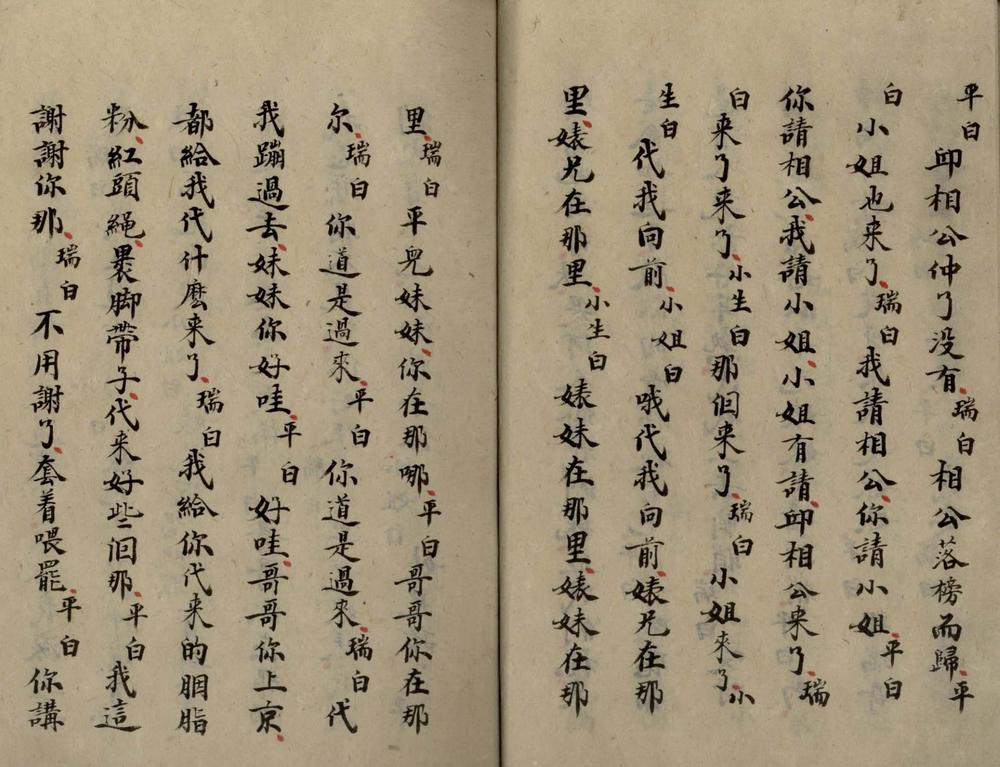 平白邱相公仲了没有瑞白相公落榜而歸平
白小姐也来了瑞白我請相公你請小姐平白
你請相公我請小姐小姐有請邱相公来了瑞
白来了来了小生白那佪来了瑞白小姐来了小
生白代我向前小姐白哦代我向前婊兄在那
里婊兄在那里小生白婊妹在那里婊妹在那
里瑞白平兒妹妹你在那哪平白哥哥你在那
尔瑞白你道是過來平白你道是過來瑞白代
我蹦過去妹妹你好哇平白好哇哥哥你上京
都給我代什麽来了瑞白我給你代来的胭脂
粉紅頭繩褁脚帶子代来好些佪那平白我這
謝謝你那瑞白不用謝了套着喂罷平白你講